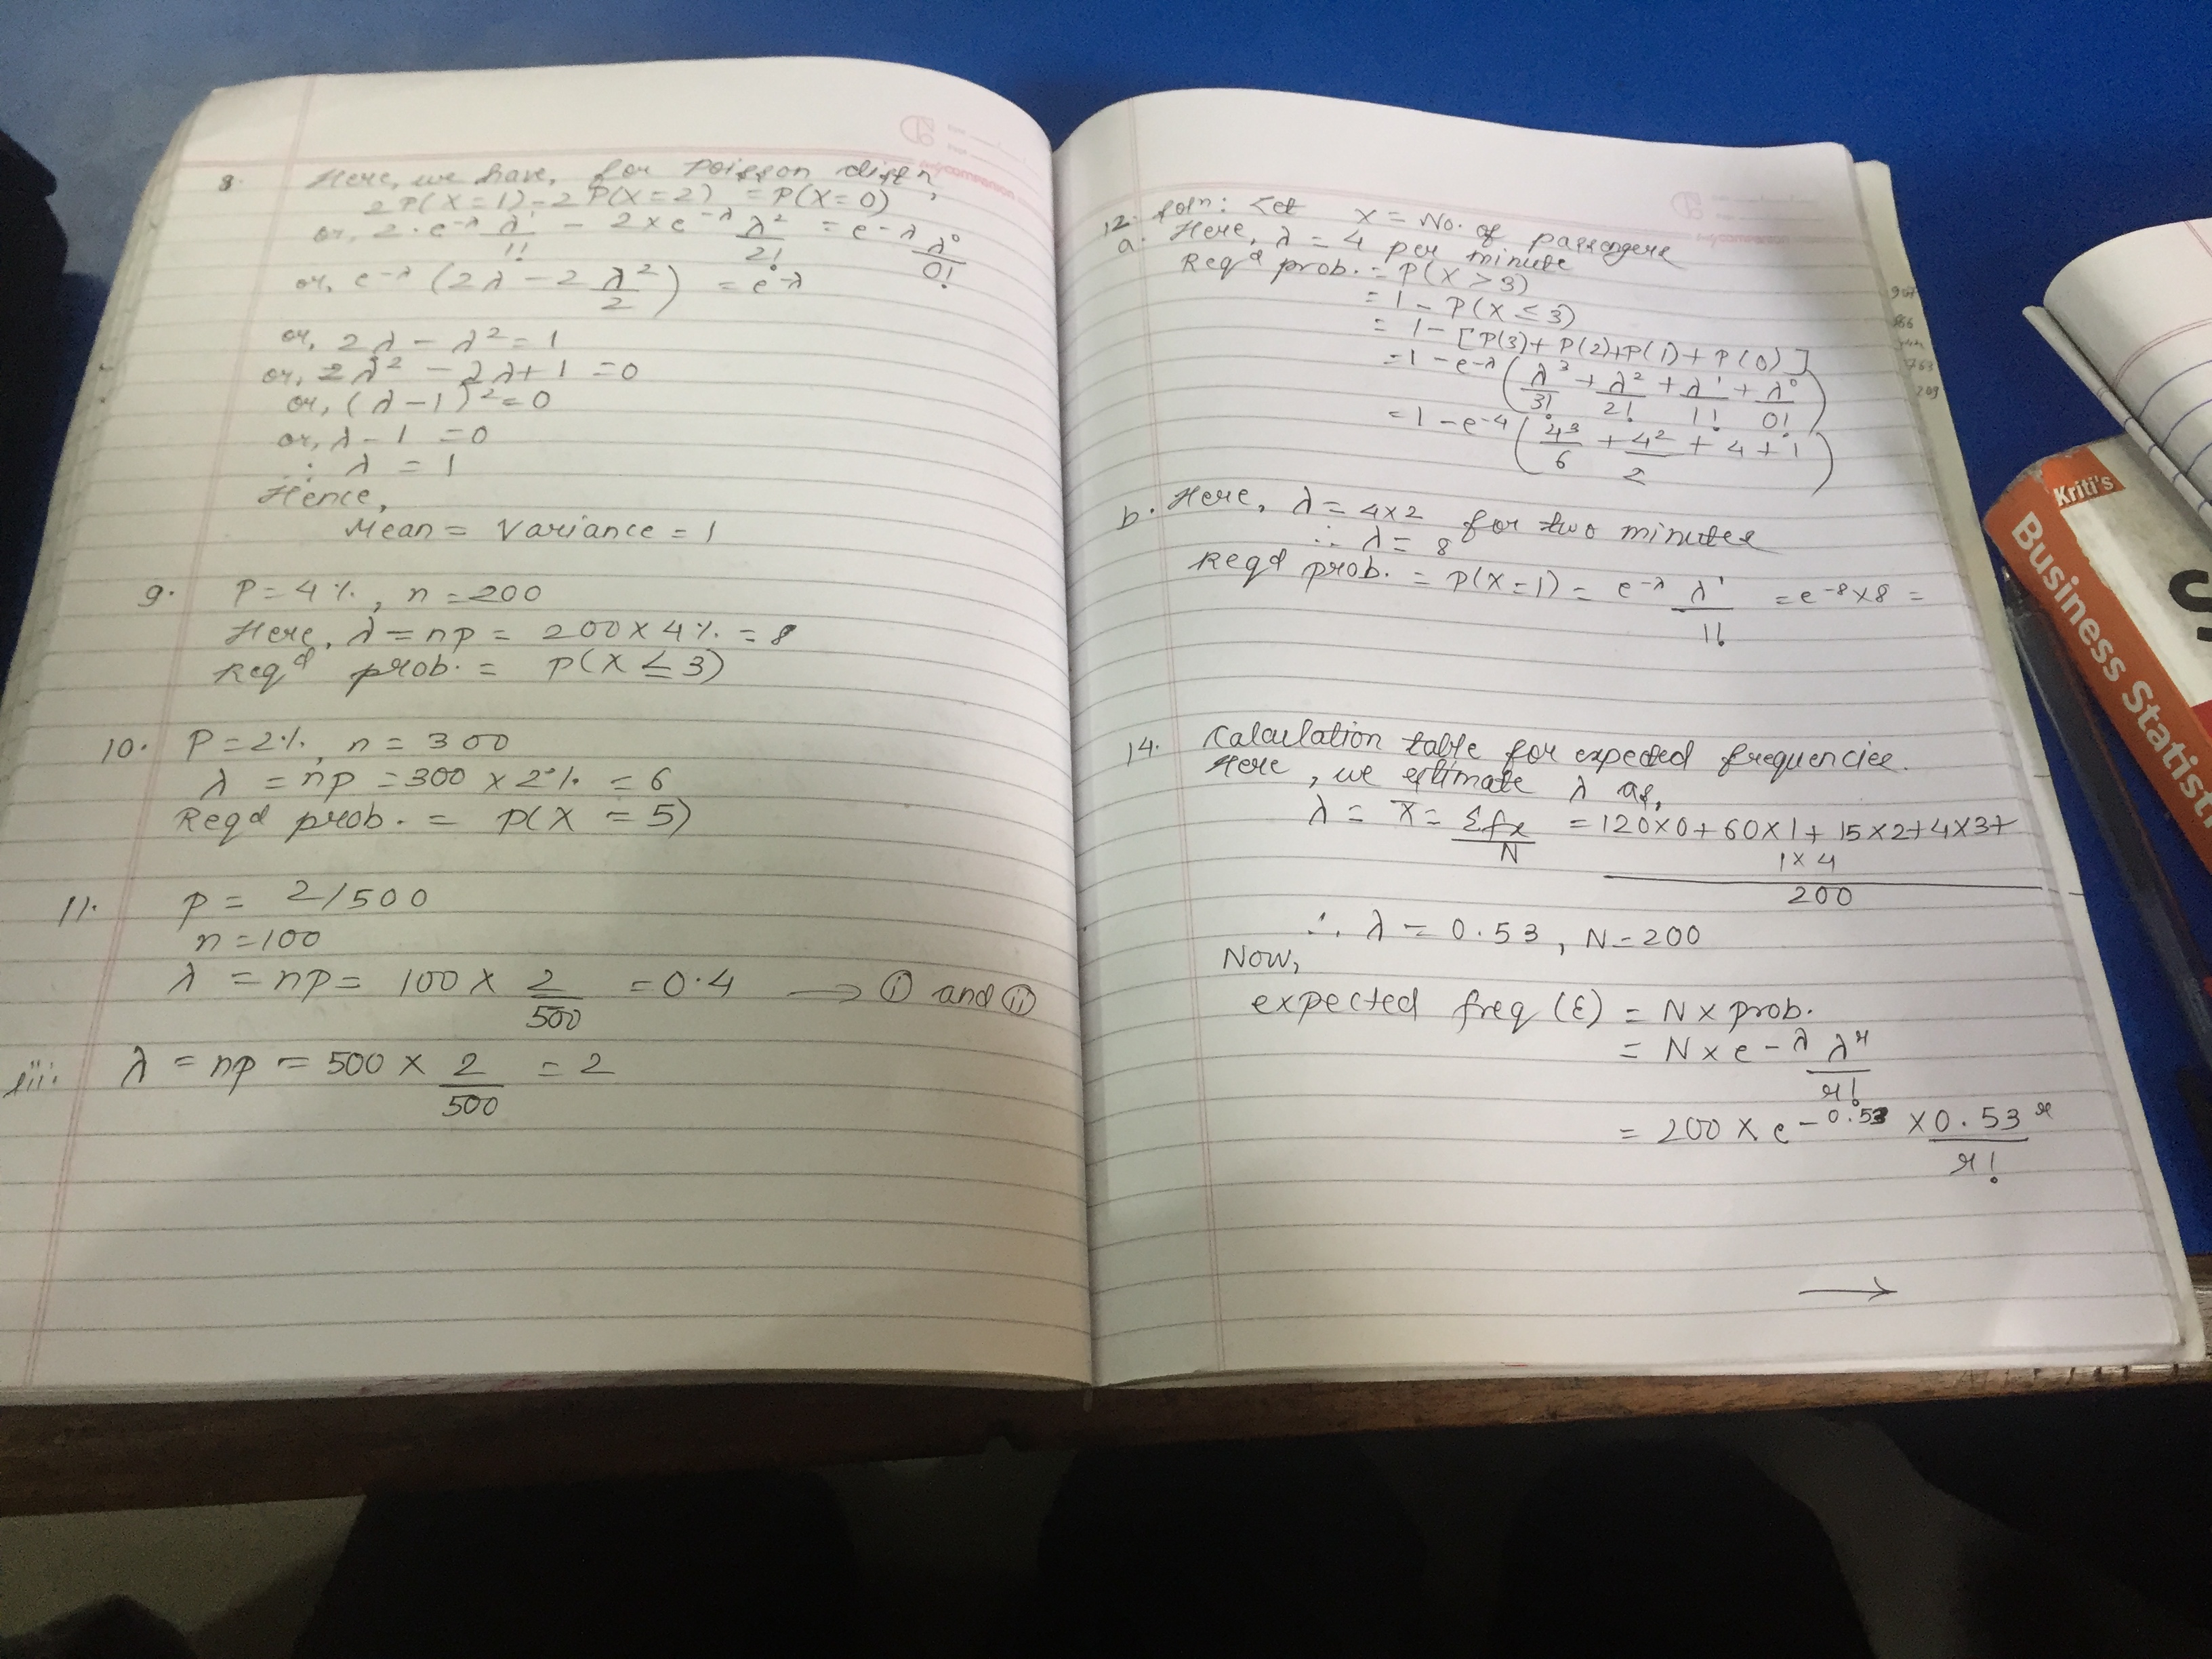 8. Here, we have, for poisson distn,
2P(X=1)-2P(X=2) = P(X=0)
or, 2·e^-λ λ^1/1! - 2×e^-λ λ^2/2! = e^-λ λ^0/0!
or, e^-λ (2λ-2 λ^2/2) = e^-λ
or, 2λ-λ^2=1
or, 2λ^2-2λ+1=0
or, (λ-1)^2=0
or, λ-1=0
∴ λ=1
Hence,
Mean = Variance = 1
9. P=4%, n=200
Here, λ=np= 200×4% = 8
Reqd prob. = P(X≤3)
10. P=2%, n=300
λ = np =300×2% = 6
Reqd prob. = P(X=5)
11. p= 2/500
n=100
λ = np= 100× 2/500 =0.4 → (i) and (ii)
iii. λ = np = 500× 2/500 = 2
12. Soln: Let X = No. of passengers
a. Here, λ = 4 per minute
Reqd prob. = P(X>3)
= 1-P(X≤3)
= 1-[P(3)+P(2)+P(1)+P(0)]
= 1-e^-λ (λ^3/3! + λ^2/2! + λ^1/1! + λ^0/0!)
= 1-e^-4 (4^3/6 + 4^2/2 + 4+1)
b. Here, λ= 4×2 for two minutes
∴ λ= 8
Reqd prob. = P(X=1) = e^-λ λ^1/1! = e^-8×8 =
14. Calculation table for expected frequencies.
Here, we estimate λ as,
λ = X̄ = Σfx/N = 120×0+60×1+15×2+4×3+
1×4
200
∴ λ = 0.53, N=200
Now,
expected freq (E) = N×prob.
= N×e^-λ λ^r/r!
= 200×e^-0.53 ×0.53^r/r!
→
Kriti's
Business Statist